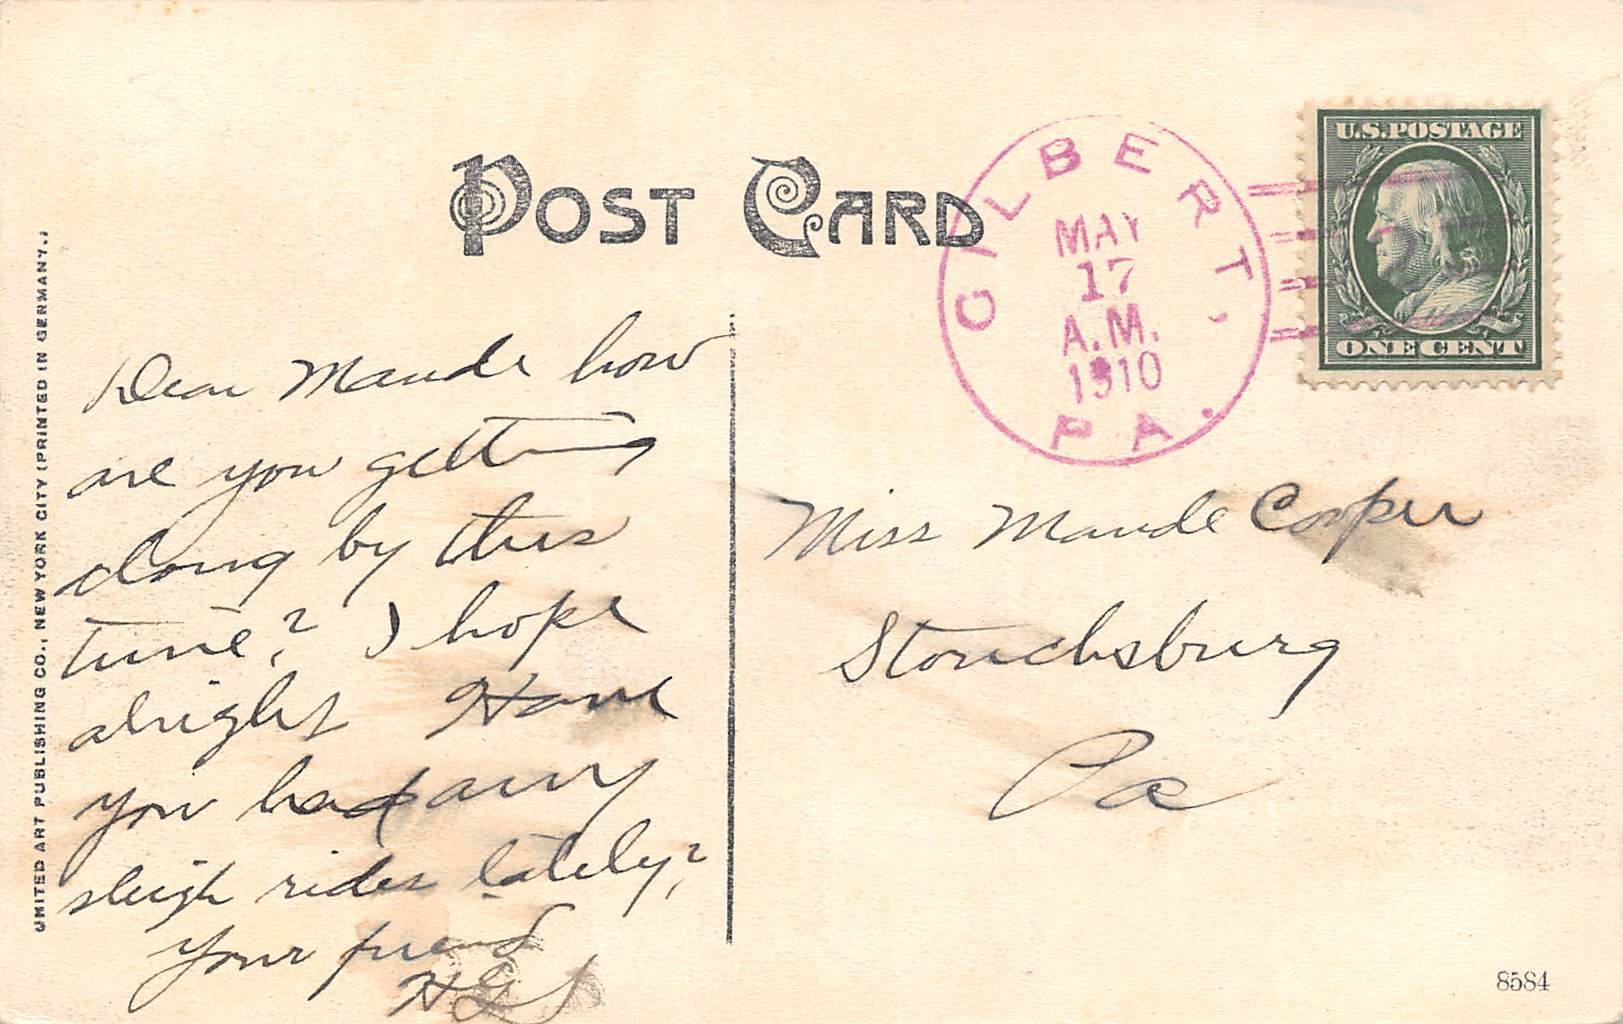 POST CARD
GILBERT, PA.
MAY
17
A.M.
1910
U.S. POSTAGE
ONE CENT
UNITED ART PUBLISHING CO., NEW YORK CITY (PRINTED IN GERMANY.)
Dear Maude how
are you getting
along by this
time? I hope
alright Have
you had any
sleigh rides lately?
Your friend
Miss Maude Cooper
Stouchsburg
Pa
8584